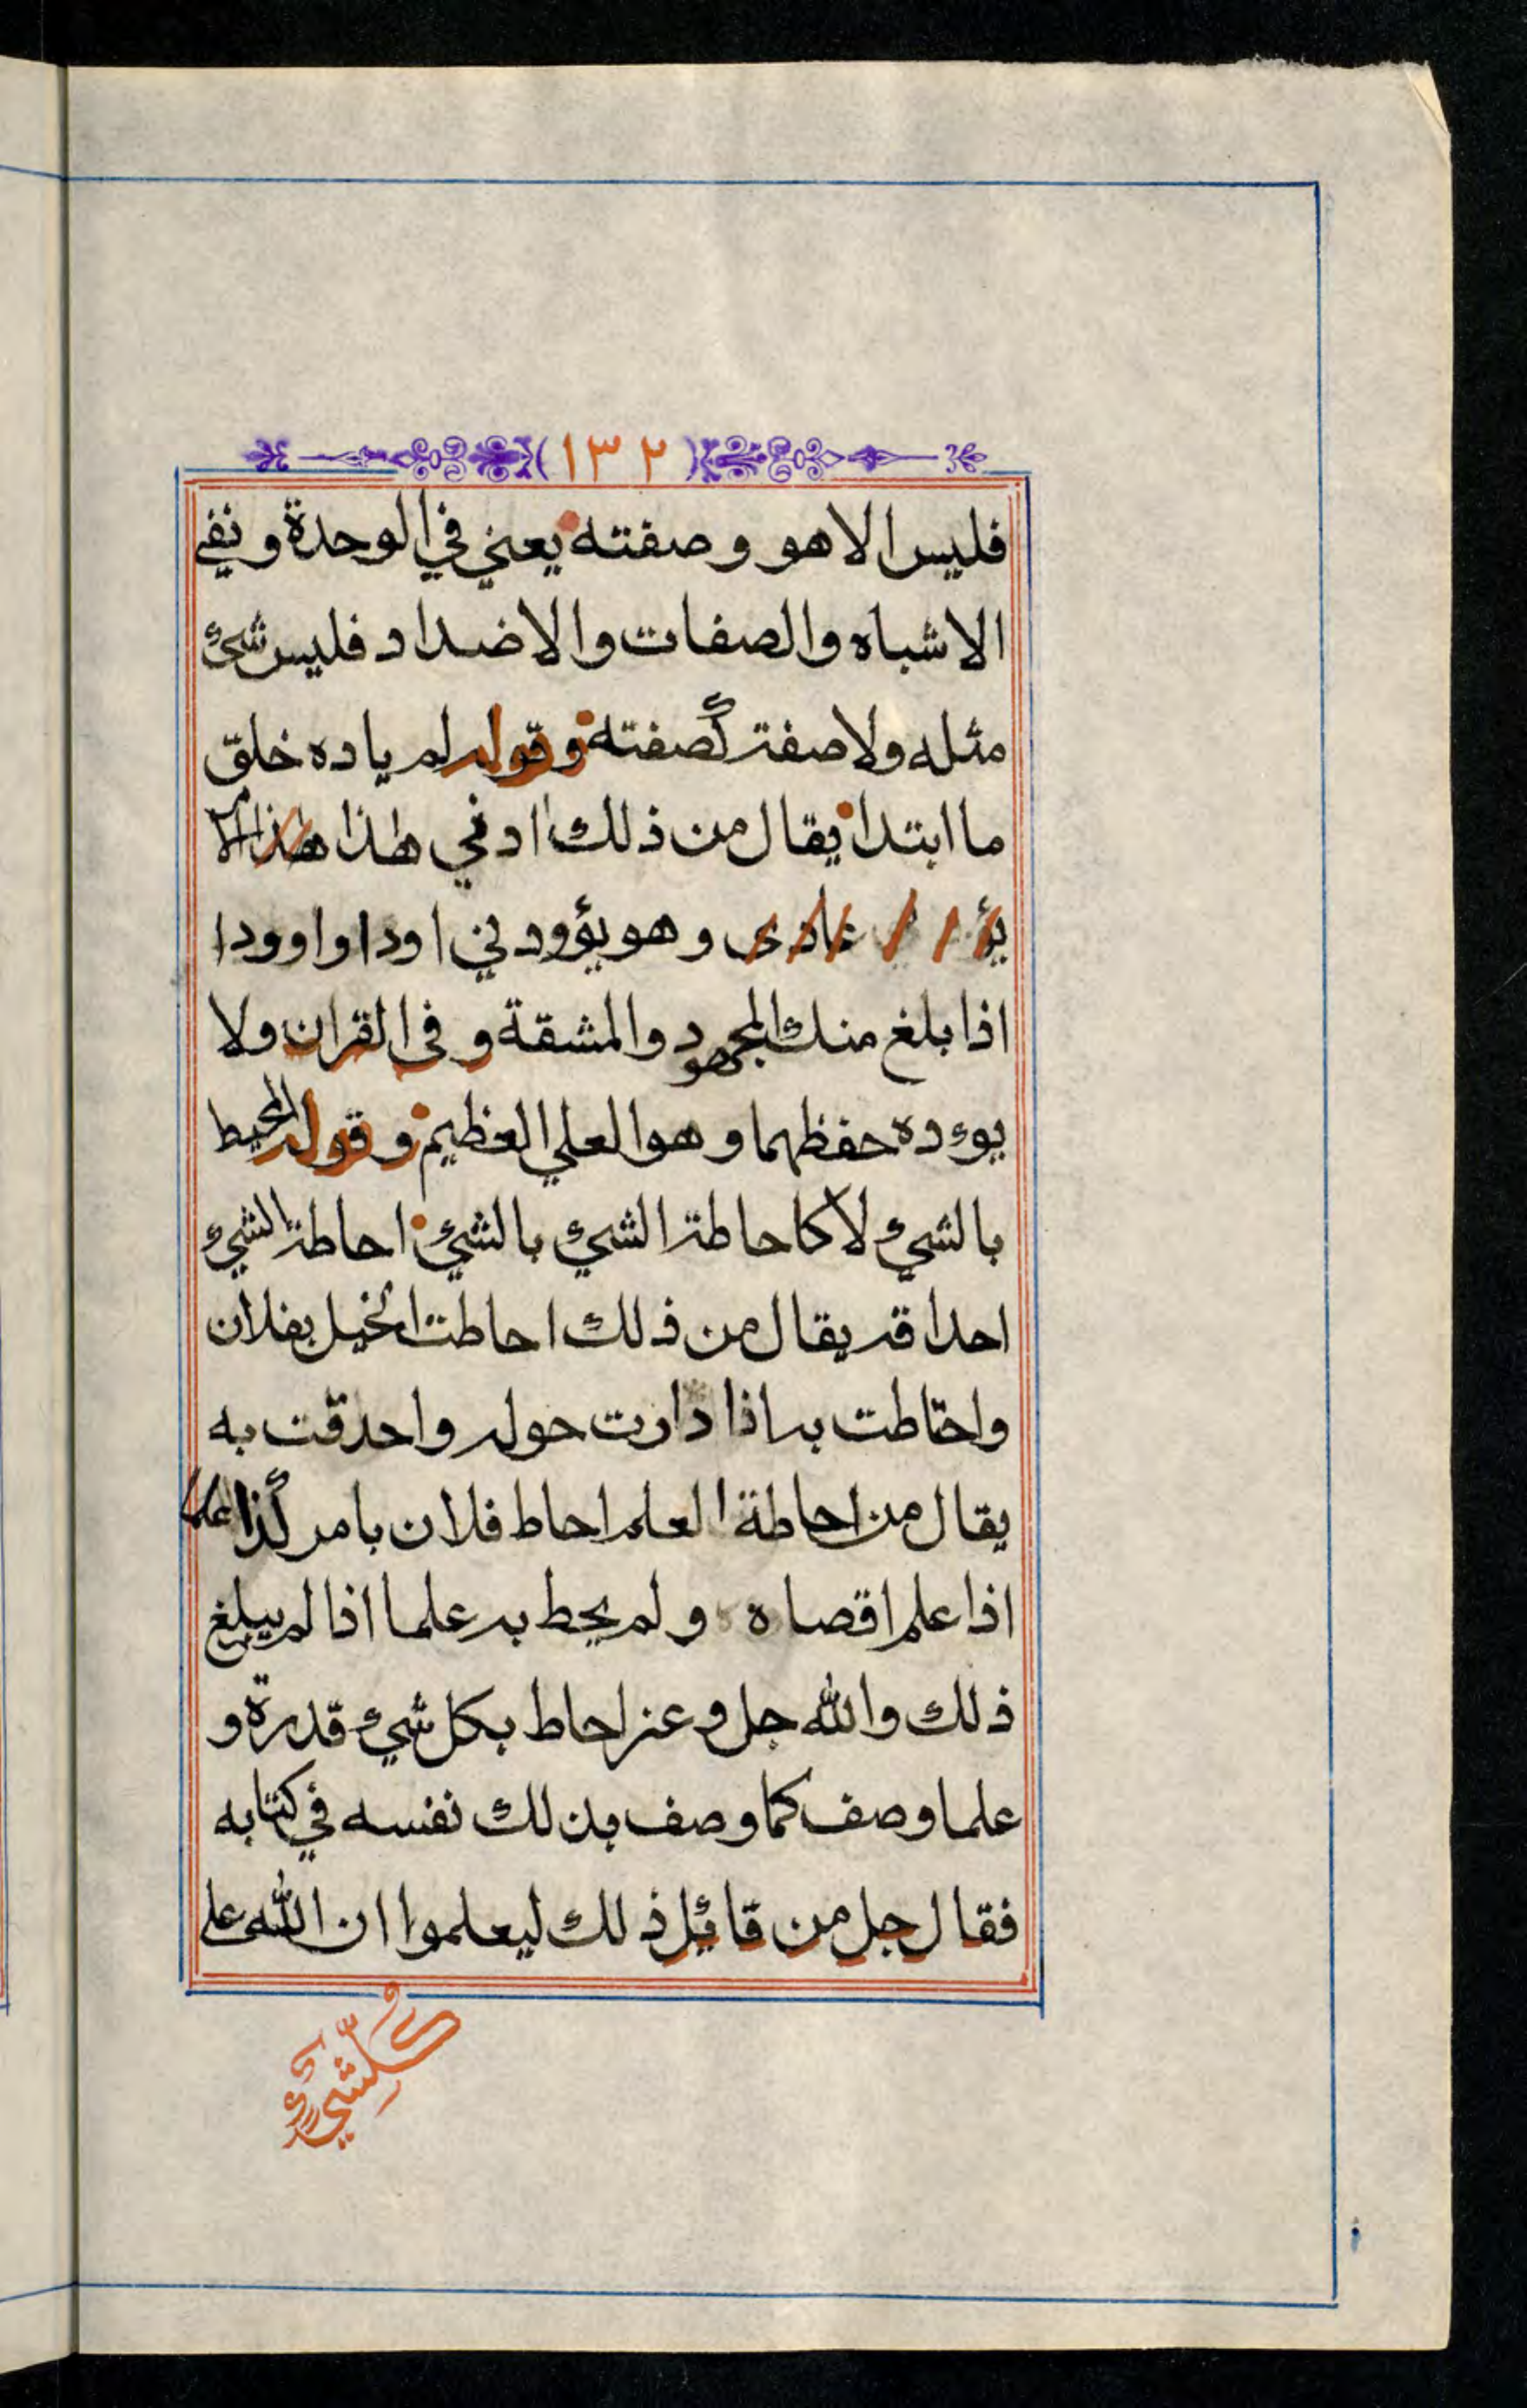 (١٣٢)
فليس الا هو وصفته يعني في الوحدة ونفي
الاشباه والصفات والاضداد فليس شئ
مثله ولا صفة كصفته وقوله لم ياده خلق
ما ابتدا يقال من ذلك ادني هذا هذا الا
وهو يؤودني اودا واوودا
اذا بلغ منك المجهود والمشقة وفي القران ولا
يوءده حفظهما وهو العلي العظيم وقوله المحيط
بالشئ لا كاحاطة الشئ بالشئ احاطة الشئ
احداقه يقال من ذلك احاطت الخيل بفلان
واحتاطت به اذا دارت حوله واحدقت به
يقال من احاطة العلم احاط فلان بامر كذا علما
اذا علم اقصاه ولم يحط به علما اذا لم يبلغ
ذلك والله جل وعز احاط بكل شئ قدرة و
علما وصف كما وصف بذلك نفسه في كتابه
فقال جل من قائل ذلك ليعلموا ان الله على
كل شئ